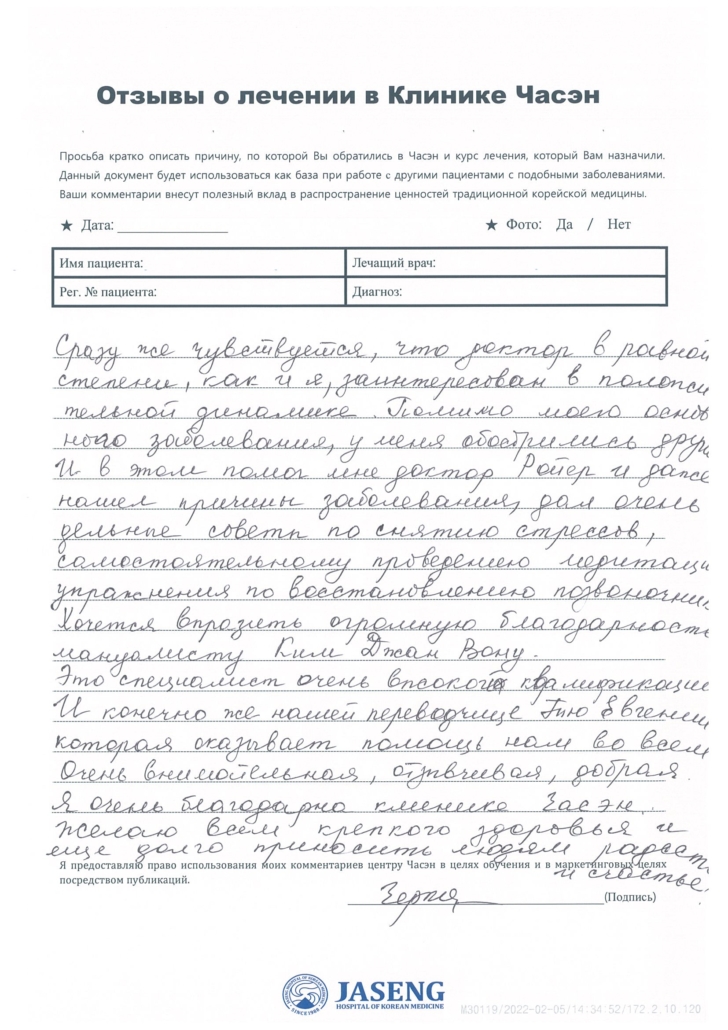 Отзывы о лечении в Клинике Часэн
Просьба кратко описать причину, по которой Вы обратились в Часэн и курс лечения, который Вам назначили.
Данный документ будет использоваться как база при работе с другими пациентами с подобными заболеваниями.
Ваши комментарии внесут полезный вклад в распространение ценностей традиционной корейской медицины.
★ Дата: ________________ ★ Фото: Да / Нет
Имя пациента: Лечащий врач:
Рег. № пациента: Диагноз:
Сразу же чувствуется, что доктор в равной
степени, как и я, заинтересован в положи
тельной динамике. Помимо моего основ
ного заболевания, у меня обострились други
И в этом помог мне доктор Ройер и даже
нашел причины заболевания, дал очень
дельные советы по снятию стрессов,
самостоятельному проведению медитаци
упражнения по восстановлению позвоночни
Хочется выразить огромную благодарность
мануалисту Ким Джан Вону.
Это специалист очень высокой квалификации
И конечно же нашей переводчице Тию Евгении
которая оказывает помощь нам во всем
Очень внимательная, отзывчивая, добрая.
Я очень благодарна клинике Часэн.
Желаю всем крепкого здоровья и
еще долго приносить людям радость
и счастье.
Я предоставляю право использования моих комментариев центру Часэн в целях обучения и в маркетинговых целях
посредством публикаций.
(Подпись)
JASENG
HOSPITAL OF KOREAN MEDICINE
SINCE 1988
M30119/2022-02-05/14:34:52/172.2.10.120